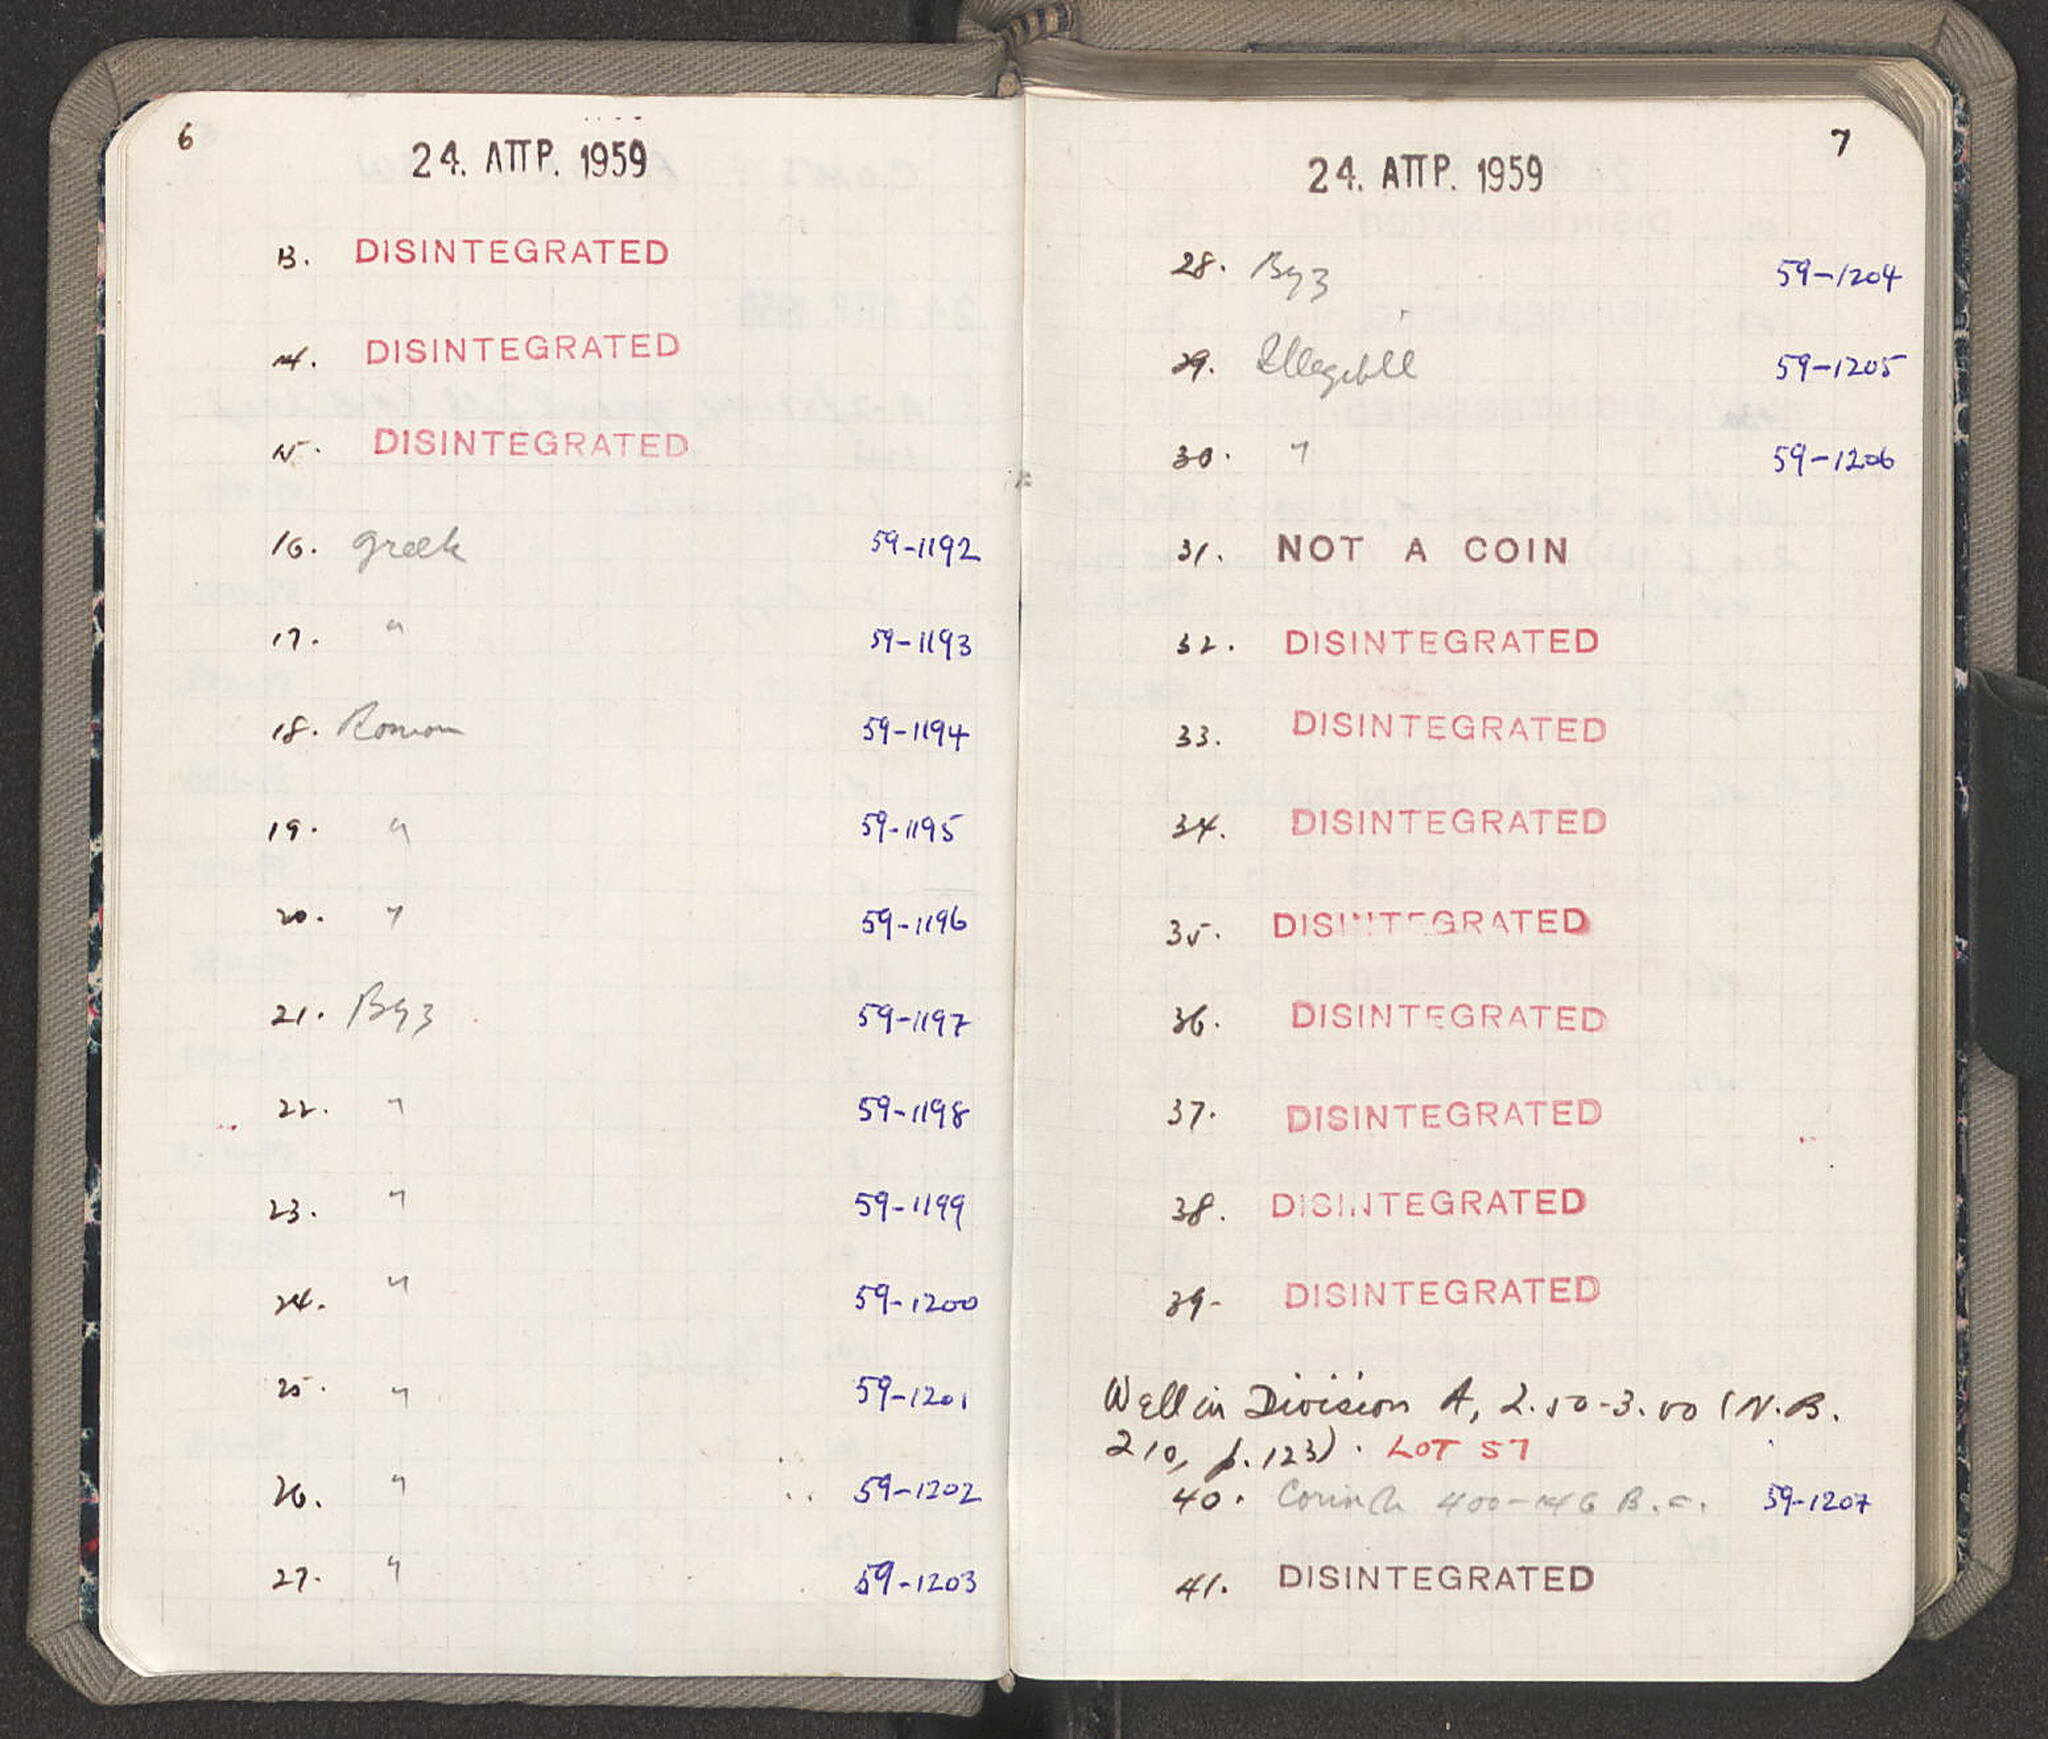 6
24. ΑΠΡ. 1959
13. DISINTEGRATED
14. DISINTEGRATED
15. DISINTEGRATED
16. Greek 59-1192
17. " 59-1193
18. Roman 59-1194
19. " 59-1195
20. " 59-1196
21. Byz 59-1197
22. " 59-1198
23. " 59-1199
24. " 59-1200
25. " 59-1201
26. " 59-1202
27. " 59-1203
7
24. ΑΠΡ. 1959
28. Byz 59-1204
29. Illegible 59-1205
30. " 59-1206
31. NOT A COIN
32. DISINTEGRATED
33. DISINTEGRATED
34. DISINTEGRATED
35. DISINTEGRATED
36. DISINTEGRATED
37. DISINTEGRATED
38. DISINTEGRATED
39- DISINTEGRATED
Well in Division A, 2.50-3.00 (N.B.
210, p. 123). LOT 57
40. Corinth 400-146 B.C. 59-1207
41. DISINTEGRATED